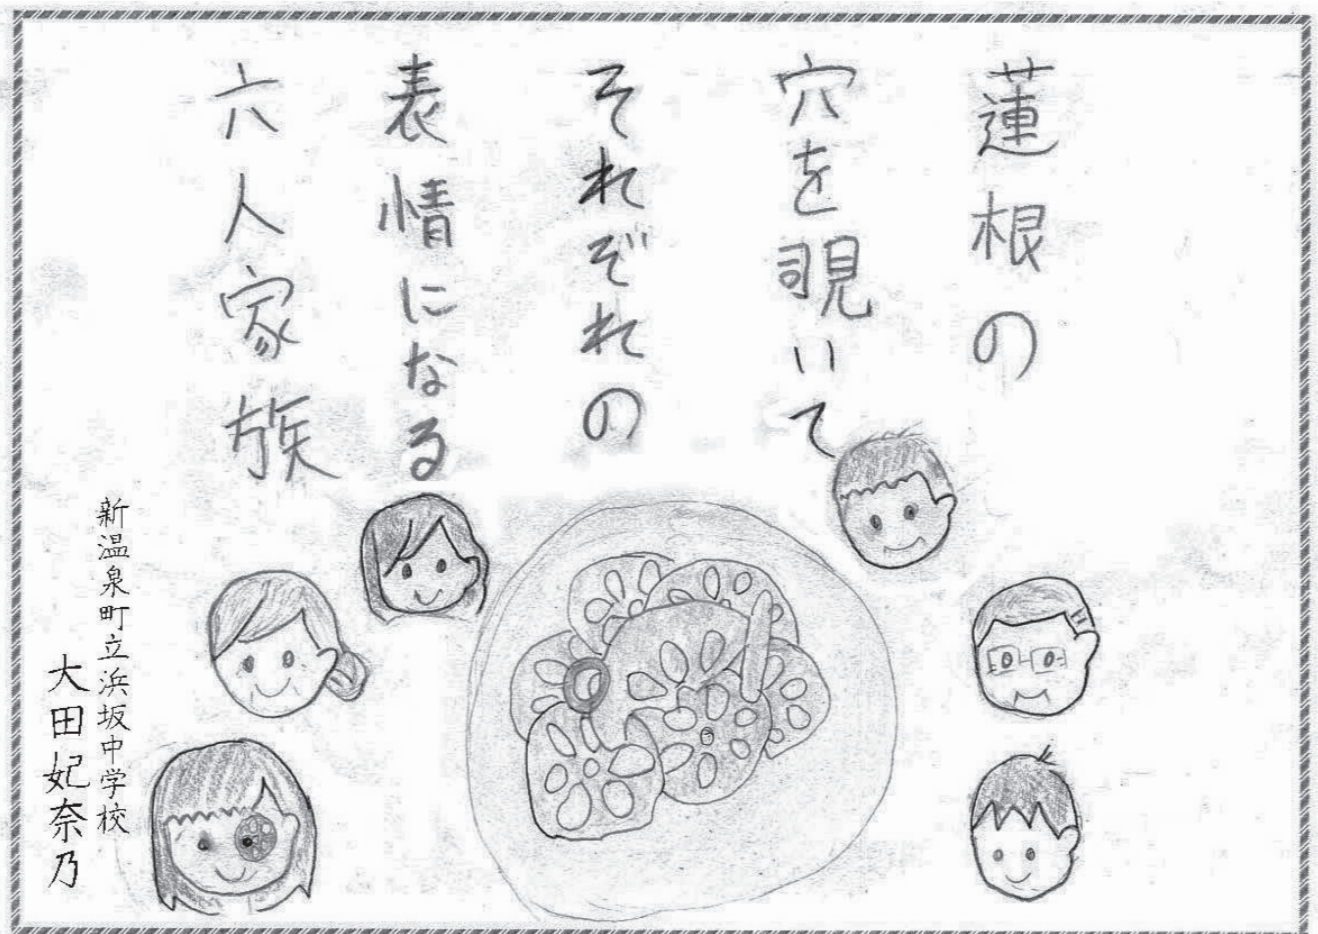 蓮根の
穴を覗いて
それぞれの
表情になる
六人家族
新温泉町立浜坂中学校
大田妃奈乃